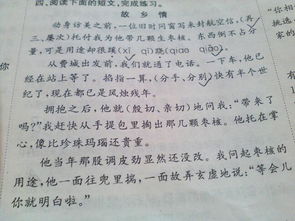 四、阅读下面的短文,完成练习。
故 乡 情
动身访美之前,一位旧时同窗写来封航空信,(再
三、屡次)托付我为他带几颗生枣核。东西倒不占分
量,可是用途却很蹊(xī qī)跷(qiāo qiào)。
从费城出发前,我们就通了电话。一下车,他已
经在站上等了。掐指一算,(分手、分别)快有半个世
纪了,现在都已是风烛残年。
拥抱之后,他就(殷切、亲切)地问我:“带来了
吗?”我赶快从手提包里掏出那几颗枣核。他托在掌
心,像比珍珠玛瑙还贵重。
他当年那股调皮劲显然还没改。我问起枣核的
用途,他一面往兜里揣,一面故弄玄虚地说:“等会儿
你就明白啦。”
你
“你相
挑选
家的